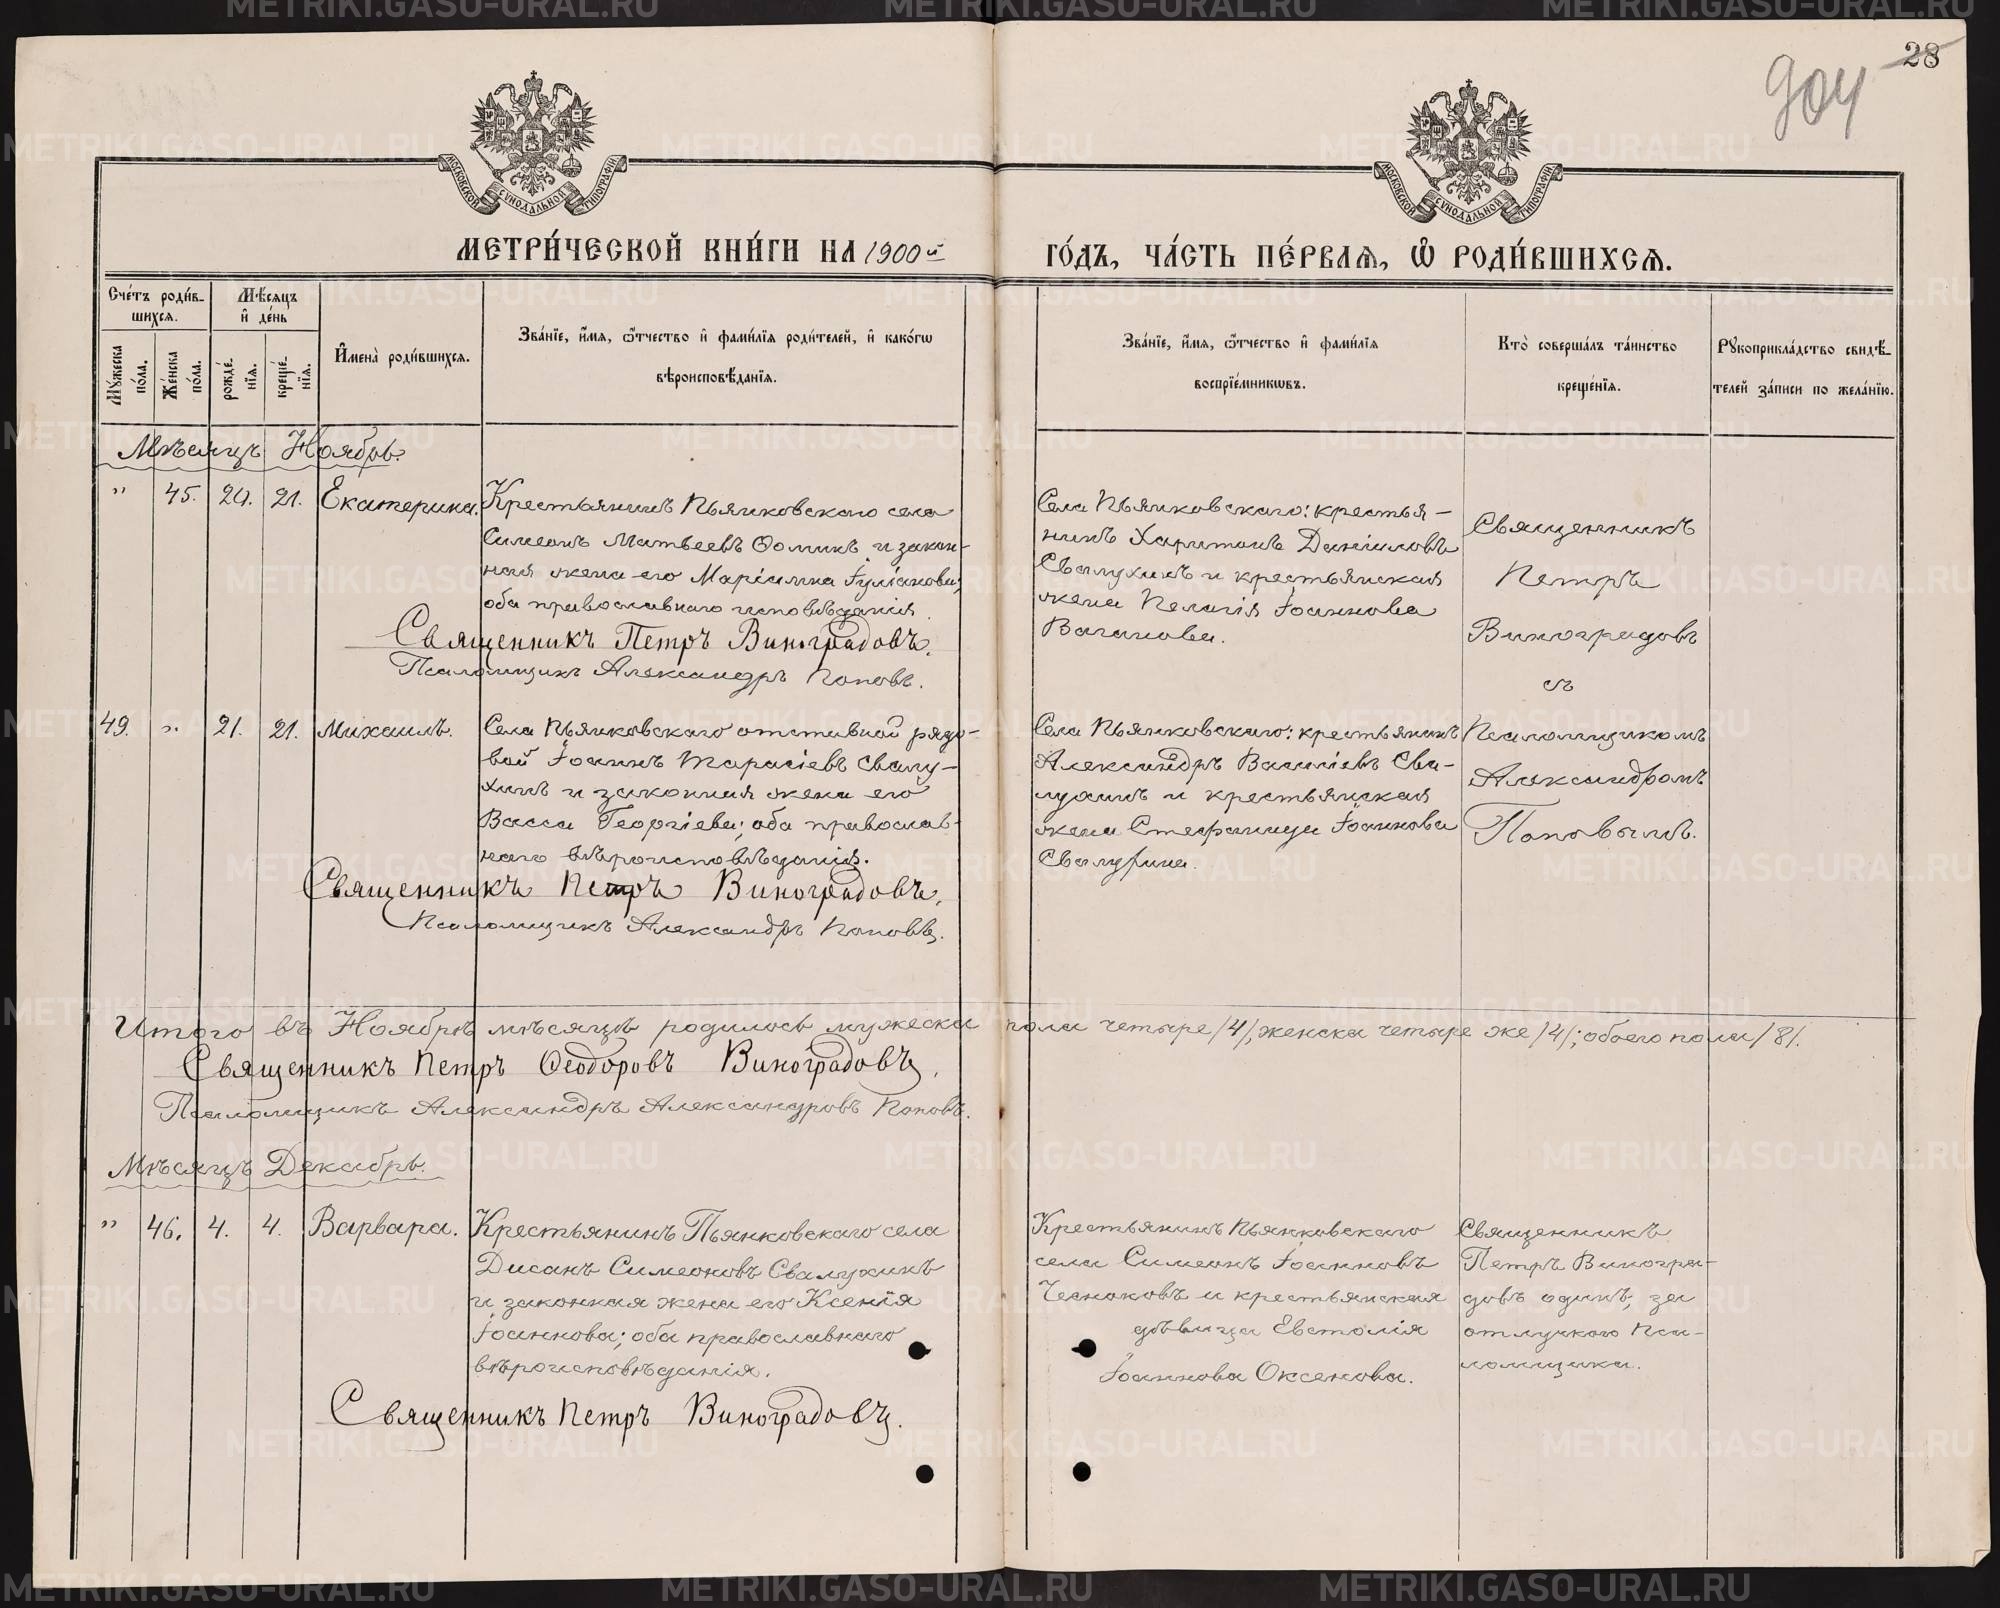 28
904
МОСКОВСКОЙ СѴНОДАЛЬНОЙ ТИПОГРАФІИ
МОСКОВСКОЙ СѴНОДАЛЬНОЙ ТИПОГРАФІИ
МЕТРИ́ЧЕСКОЙ КНИ́ГИ НА 1900й
ГО́ДЪ, ЧА́СТЬ ПЕ́РВАЯ, Ѡ҆ РОДИ́ВШИХСЯ.
Сче́тъ роди́в-
шихся.
Мѣ́сяцъ
и҆ де́нь
Мꙋ́жеска
по́ла.
Же́нска
по́ла.
рожде́-
нїя.
креще́-
нїя.
И҆мена̀ роди́вшихся.
Зва́нїе, и҆́мя, ѻ҆́тчество и҆ фами́лїя роди́телей, и҆ како́гѡ
вѣроисповѣ́данїя.
Зва́нїе, и҆́мя, ѻ҆́тчество и҆ фами́лїя
воспрїе́мникѡвъ.
Кто̀ соверша́лъ та́инство
креще́нїя.
Рꙋкоприкла́дство свидѣ́-
телей за́писи по жела́нїю.
Мѣсяцъ Ноябрь.
" 45. 20. 21. Екатерина.
Крестьянинъ Пьянковскаго села
Симеонъ Матвеевъ Ѳоминъ и закон-
ная жена его Маріамна Іуліанова,
оба православнаго исповѣданія.
Священникъ Петръ Виноградовъ.
Псаломщикъ Александръ Поповъ.
Села Пьянковскаго: крестья-
нинъ Харитонъ Даніиловъ
Свалухинъ и крестьянская
жена Пелагія Іоаннова
Ваганова.
Священникъ
Петръ
Виноградовъ
съ
Псаломщикомъ
Александромъ
Поповымъ.
49. ". 21. 21. Михаилъ.
Села Пьянковскаго отставной рядо-
вой Іоаннъ Тарасіевъ Свалу-
хинъ и законная жена его
Васса Георгіева; оба православ-
наго вѣроисповѣданія.
Священникъ Петръ Виноградовъ.
Псаломщикъ Александръ Поповъ.
Села Пьянковскаго: крестьянинъ
Александръ Василіевъ Сва-
лухинъ и крестьянская
жена Стефанида Іоаннова
Свалухина.
Итого въ Ноябрѣ мѣсяцѣ родилось мужеска пола четыре /4/, женска четыре же /4/; обоего пола /8/.
Священникъ Петръ Ѳеодоровъ Виноградовъ.
Псаломщикъ Александръ Александровъ Поповъ.
Мѣсяцъ Декабрь.
" 46. 4. 4. Варвара.
Крестьянинъ Пьянковскаго села
Симеоновъ Свалухинъ
и законная жена его Ксенія
Іоаннова; оба православнаго
вѣроисповѣданія.
Священникъ Петръ Виноградовъ.
Крестьянинъ Пьянковскаго
села Симеонъ Іоанновъ
Чесноковъ и крестьянская
дѣвица Евстолія
Іоаннова Оксенова.
Священникъ
Петръ Виногра-
довъ одинъ, за
отлучкою Пса-
ломщика.
METRIKI.GASO-URAL.RU